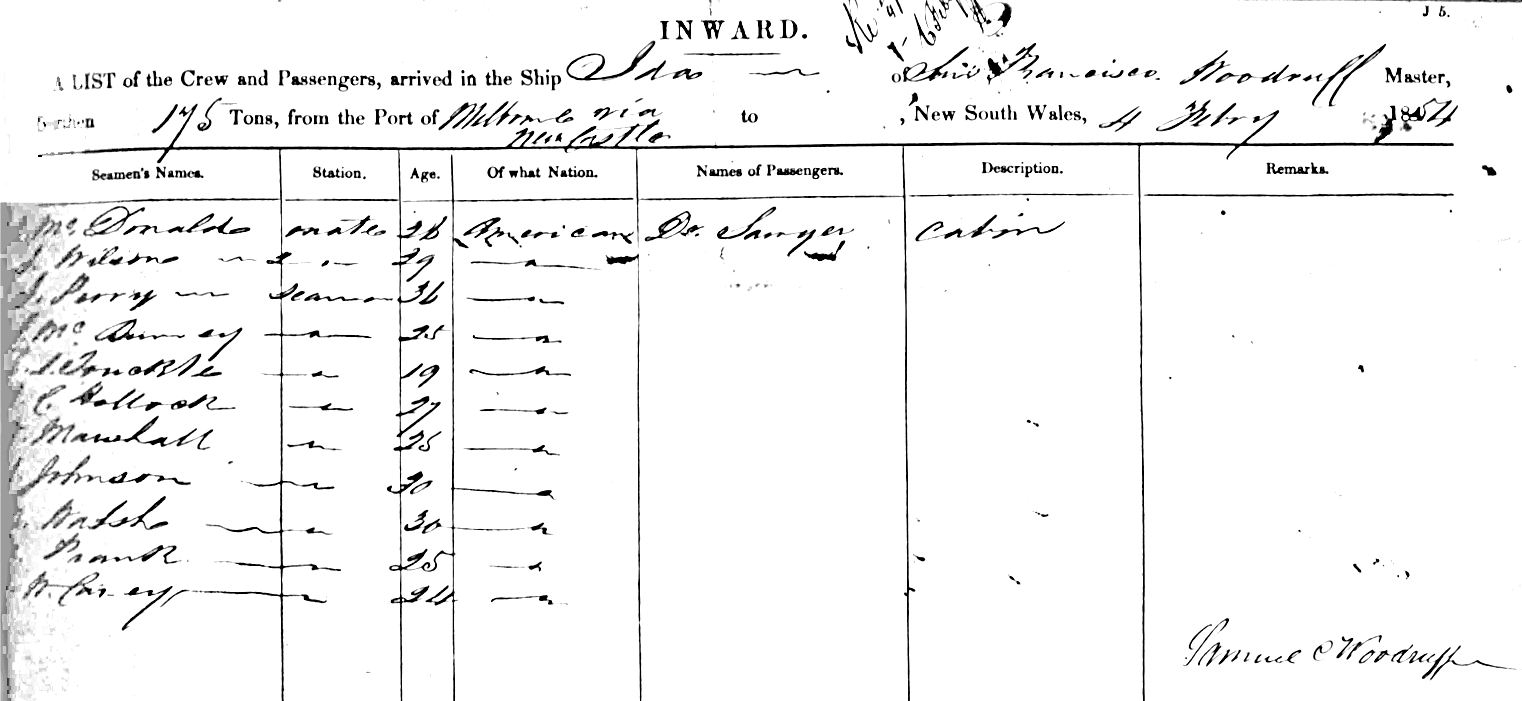 J 5.
INWARD.
A LIST of the Crew and Passengers, arrived in the Ship Ida of San Francisco. Woodruff Master,
Burthen 175 Tons, from the Port of Melbourne via to , New South Wales, 4 Febry 1854
New Castle
Seamen's Names. Station. Age. Of what Nation. Names of Passengers. Description. Remarks.
Mc Donald mate 26 American Dr. Sawyer cabin
J. Wilson 2 29
J. Perry Seaman 36
Mc 25
19
C. Hollock 27
Marshall 25
Johnson 30
Walsh 30
Frank 25
W. Carey 24
Samuel C Woodruff